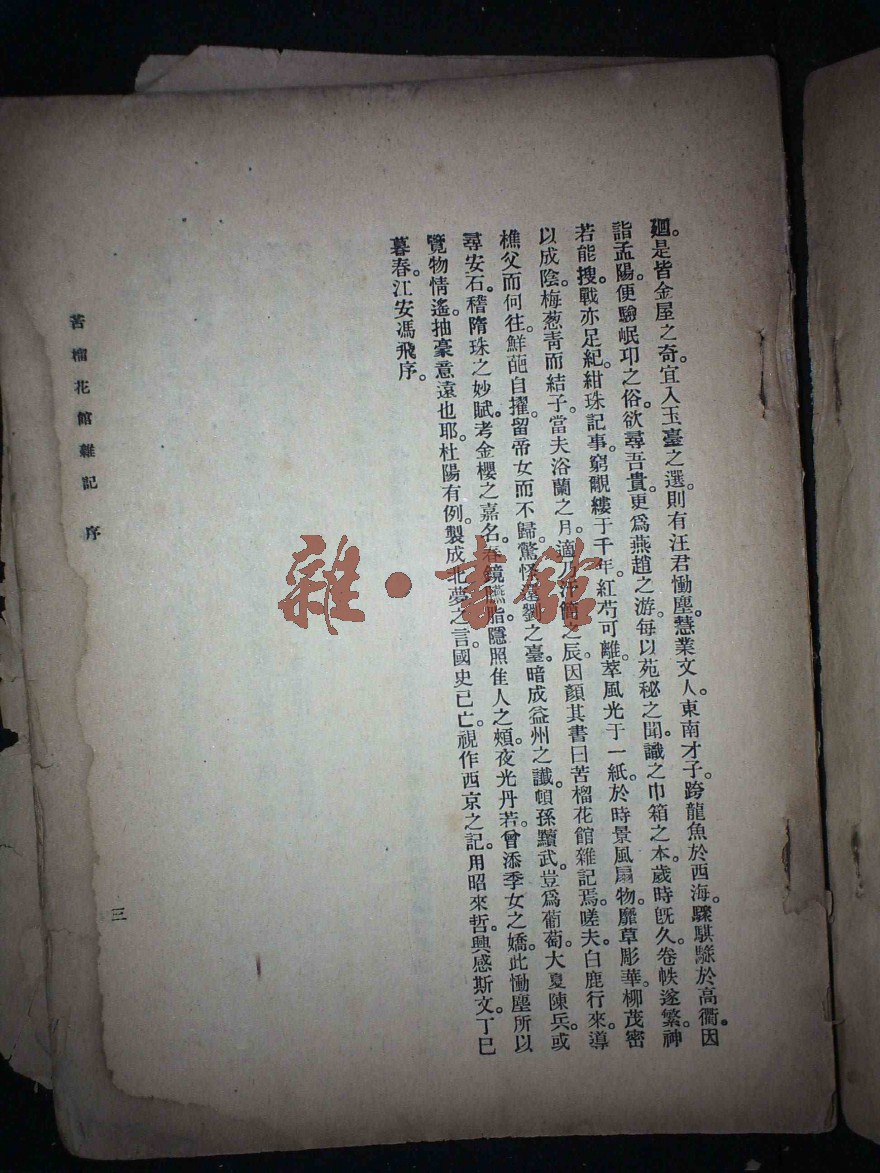 廻。是皆金屋之奇。宜入玉臺之選。則有汪君慟塵。慧業文人。東南才子。跨龍魚於西海。驟騏驥於高衢。因
詣孟陽。便驗岷邛之俗。欲尋吾貴。更爲燕趙之游。每以苑秘之聞。識之巾箱之本。歲時旣久。卷帙遂繁。神
若能搜。戰亦足紀。紺珠記事。窮覼縷于千年。紅芍可離。萃風光于一紙。於時景風扇物。靡草彫華。柳茂密
以成陰。梅葱青而結子。當夫浴蘭之月。適乃汗簡之辰。因顏其書曰苦榴花館雜記焉。嗟夫。白鹿行來。導
樵父而何往。鮮葩自擢。留帝女而不歸。驚怪遠劉之臺。暗成益州之讖。頓孫黷武。豈爲葡萄。大夏陳兵。或
尋安石。稽隋珠之妙賦。考金櫻之嘉名。春鏡臙脂。隱照佳人之頰。夜光丹若。曾添季女之嬌。此慟塵所以
覽物情遙。抽豪意遠也耶。杜陽有例。製成北夢之言。國史已亡。視作西京之記。用昭來哲。興感斯文。丁巳
暮春。江安馮飛序。
苦榴花館雜記 序
三
雜·書館